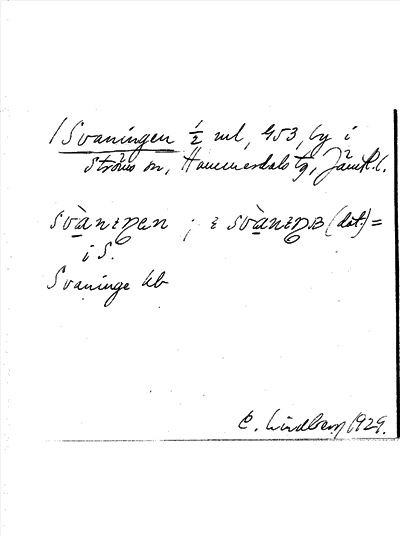 / Svaningen ½ ml, 453, by i
Ströms sn, Hammerdals tg, Jämtl. l.
svànıŋen ; ı svànıŋɷ (dat.) =
i S.
Svaninge kb
E. Lindberg 1929.